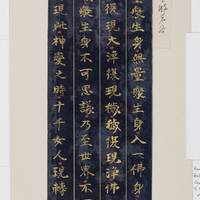 量衆生身無量衆生身入一佛身
復現大淨復現穢穢復現淨佛
衆生身不可思議乃至世界不
現此神變之時十千女人現轉